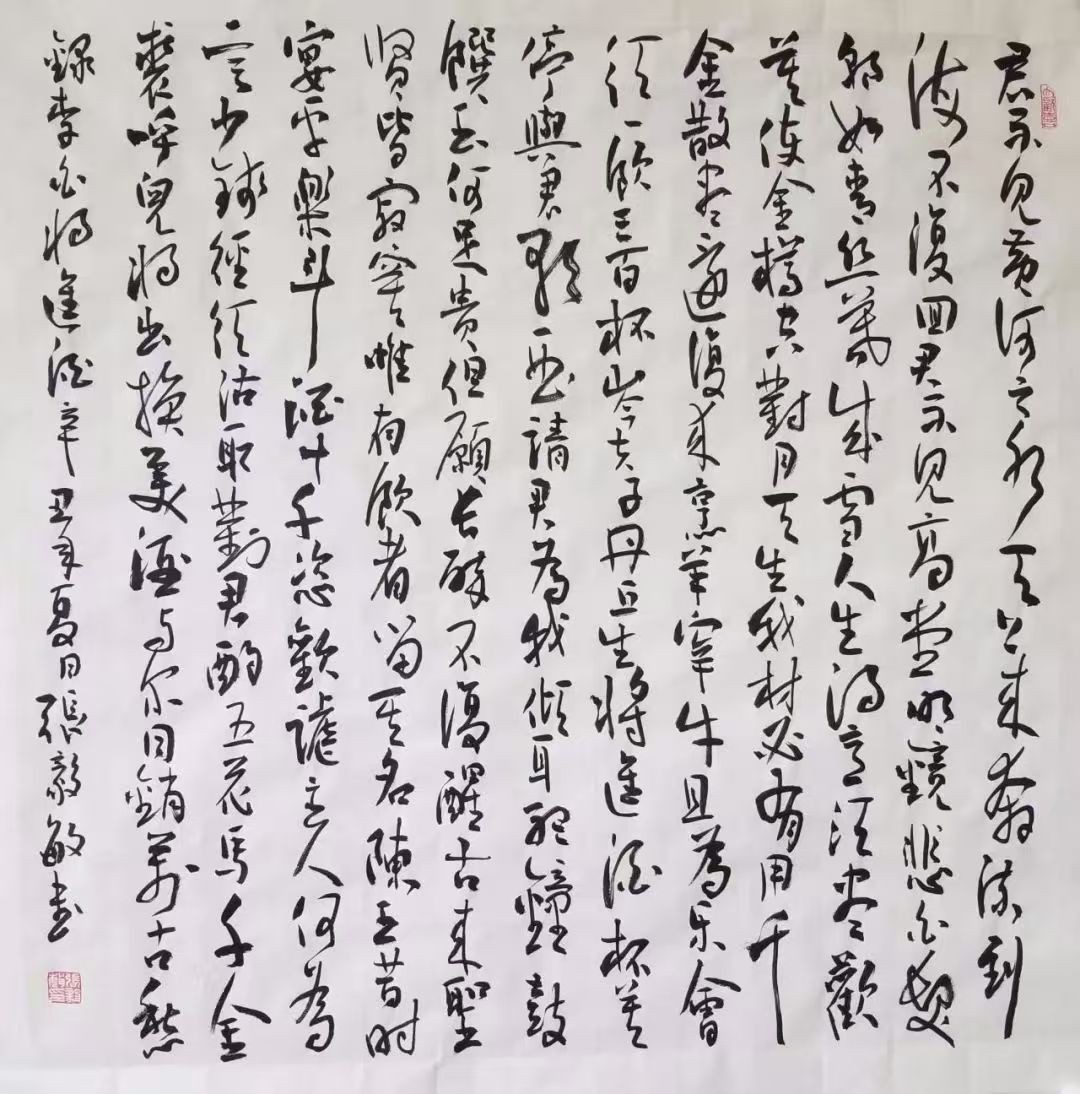 君不见黄河之水天上来奔流到
海不復回君不見高堂明鏡悲白髮
朝如青丝暮成雪人生得意须尽歡
莫使金樽空對月天生我材必有用千
金散尽還復来烹羊宰牛且為乐會
须一飲三百杯岑夫子丹丘生將進酒杯莫
停與君歌一曲請君為我傾耳聽鐘鼓
饌玉何足貴但願長醉不復醒古来聖
贤皆寂寞唯有飲者留其名陳王昔时
宴平樂斗酒十千恣歡謔主人何為
言少錢徑须沽取對君酌五花馬千金
裘呼兒將出換美酒与尔同銷萬古愁
錄李白將進酒辛丑年夏日張毅敏書